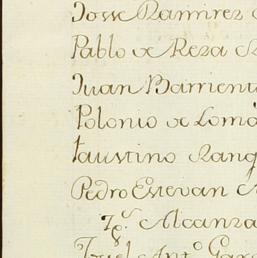 Josse Ramirez
Pablo de Reza
Juan Barriento
Polonio de Loma
Faustino Rang
Pedro Estevan
Alcanza
Ant.º Garc